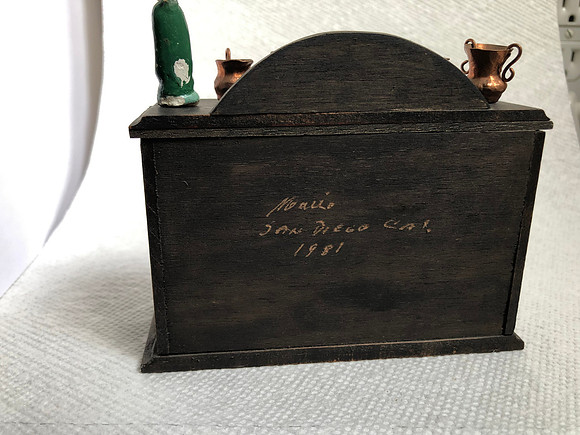 SAN DIEGO CAL
1981